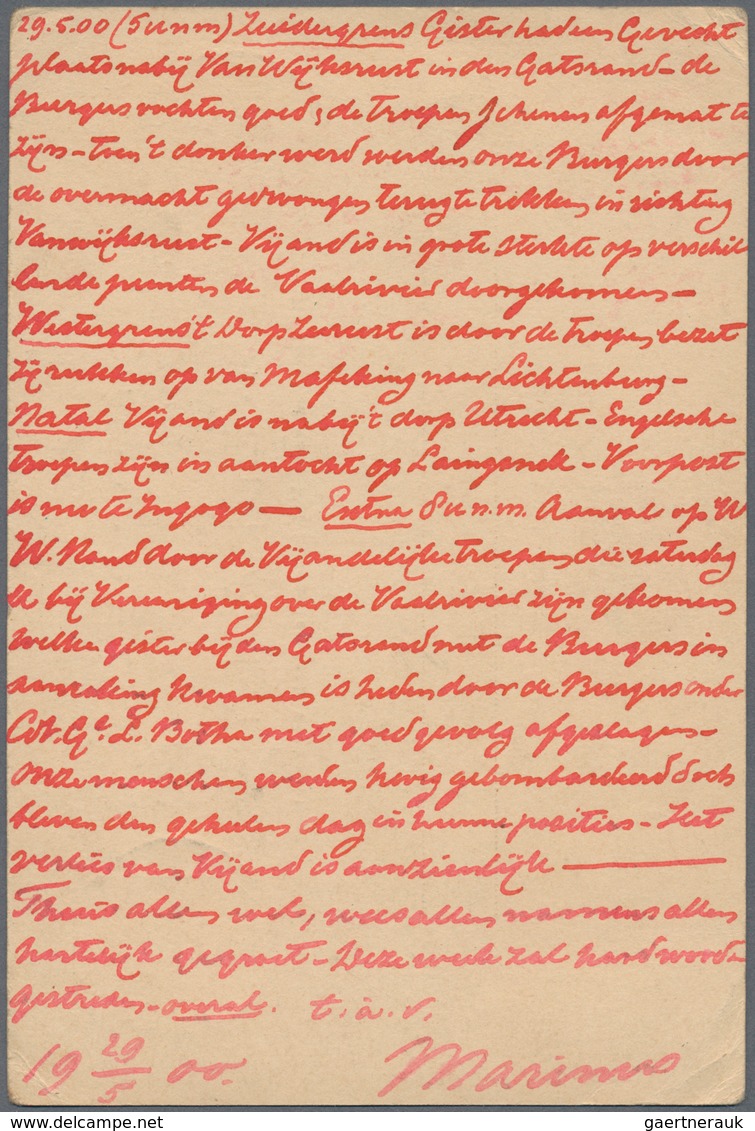 29.5.00 (5 u n m) Zuidergrens Gister had een Gevecht
plaats nabij Van Wijksrust in den Gatsrand – de
Burgers vochten goed, de troepen schenen afgemat te
zijn – toen 't donker werd werden onze Burgers door
de overmacht gedwongen terug te trekken in richting
Vanwijksrust – Vijand is in grote sterkte op verschil
lende punten de Vaalrivier doorgekomen –
Westergrens 't Dorp Zeerust is door de troepen bezet
zij rukken op van Mafeking naar Lichtenburg –
Natal Vijand is nabij 't dorp Utrecht – Engelsche
troepen zijn in aantocht op Laingsnek – Voorpost
is nu te Ingogo — Extra 8 u n.m. Aanval op W
W. Rand door de Vijandelijke troepen die zaterdag
bij Vereeniging over de Vaalrivier zijn gekomen
welke gister bij den Gatsrand met de Burgers in
aanraking kwamen is heden door de Burgers onder
Cdt. Gl. L. Botha met goed gevolg afgeslagen –
Onze menschen werden hevig gebombardeerd doch
bleven den geheelen dag in hunne posities – Het
verlies van Vijand is aanzienlijk —
Thuis alles wel, wees allen namens allen
hartelijk gegroet – Deze week zal hard worden
gestreden – overal. t. à. v.
19 29/5 00. Marinus
gaertnerauk